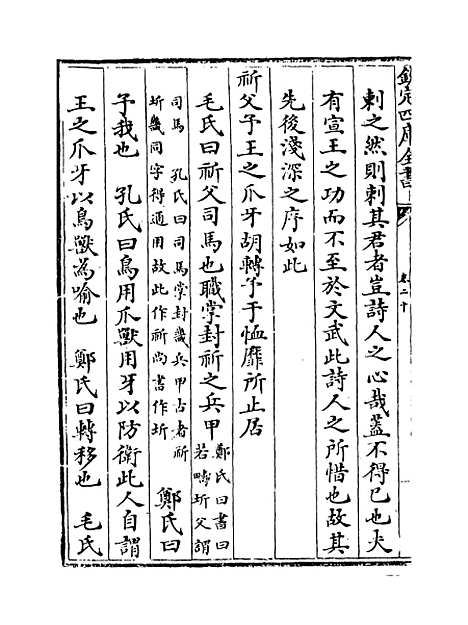 欽定四庫全書
卷二十
刺之然則刺其君者豈詩人之心哉蓋不得已也夫
有宣王之功而不至於文武此詩人之所惜也故其
先後淺深之序如此
祈父予王之爪牙胡轉予于恤靡所止居
毛氏曰祈父司馬也職掌封祈之兵甲鄭氏曰書曰若疇圻父謂
司馬　孔氏曰司馬掌封畿兵甲古者祈圻畿同字得通用故此作祈尚書作圻　鄭氏曰
予我也　孔氏曰鳥用爪獸用牙以防衛此人自謂
王之爪牙以鳥獸為喻也　鄭氏曰轉移也　毛氏